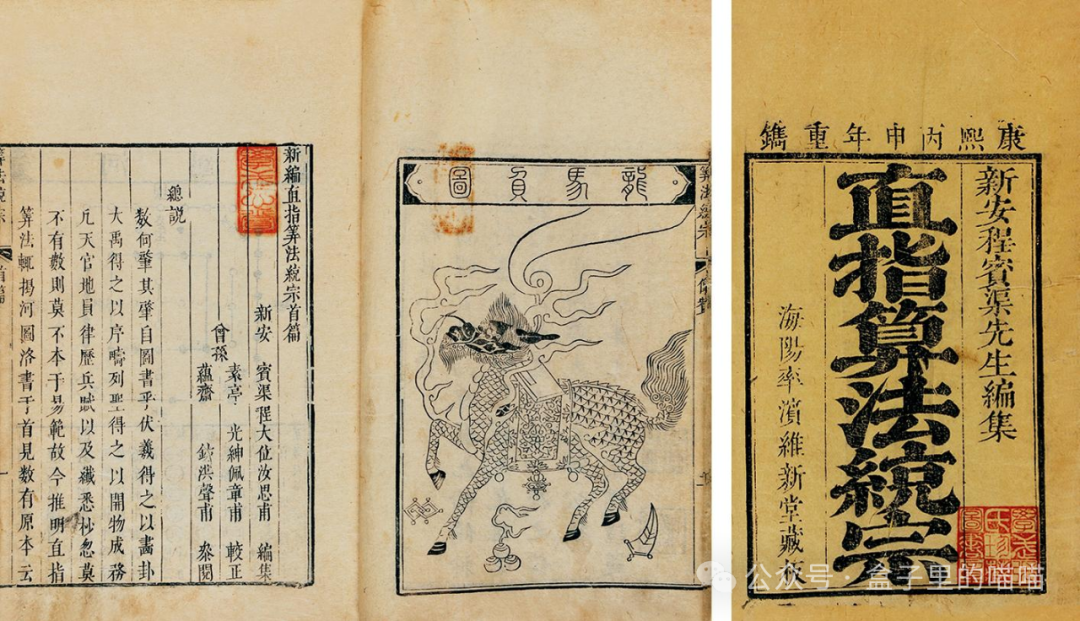 康熙丙申年重鐫
新安程賓渠先生編集
直指算法統宗
海陽率濱維新堂藏
龍馬負圖
新編直指算法統宗首篇
新安 賓渠程大位汝思甫 編集
曾孫
素亭 光紳佩章甫 較正
蘊齋 洪聲甫 叅閱
總説
数何肇其肇自圖書乎伏羲得之以畫卦
大禹得之以序疇列聖得之以開物成務
凡天官地員律曆兵賦以及纖悉抄忽莫
不有數則莫不本于易範故今推明直指
算法輒揭河圖洛書于首見数有原本云
首篇
公众号 · 盒子里的喵喵